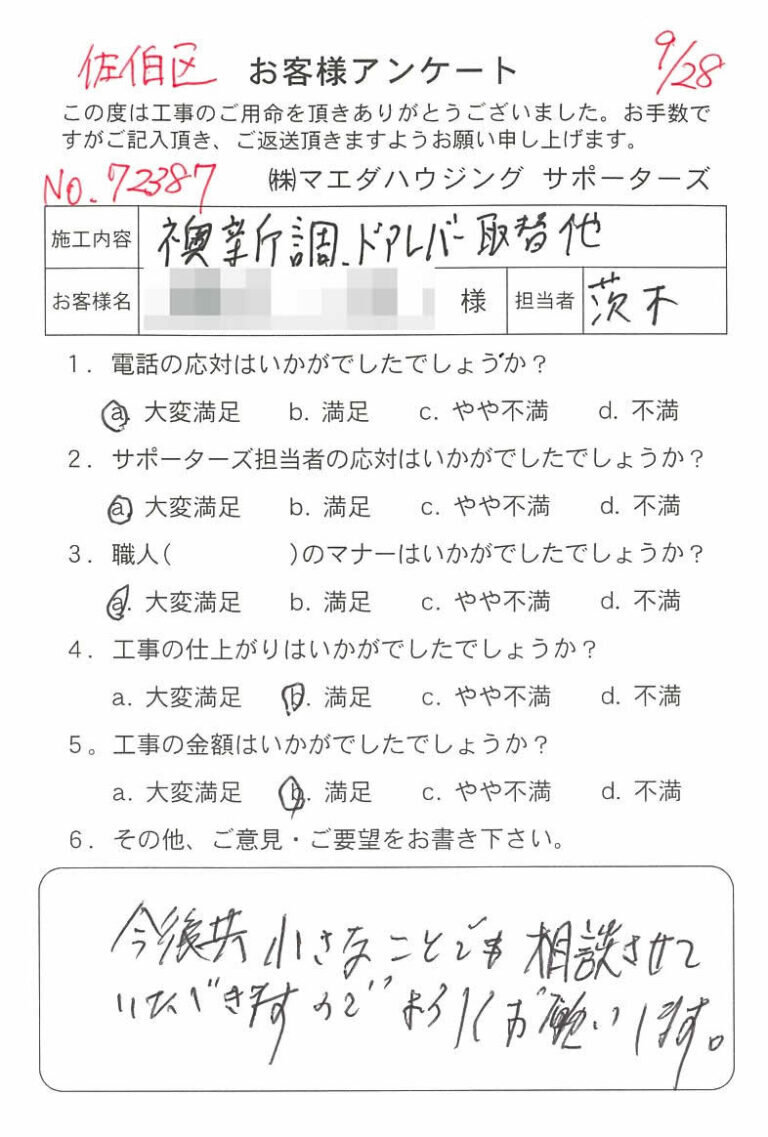 佐伯区 お客様アンケート 9/28
この度は工事のご用命を頂きありがとうございました。お手数で
すがご記入頂き、ご返送頂きますようお願い申し上げます。
NO.72387 ㈱マエダハウジング サポーターズ
施工内容 襖新調、ドアレバー取替他
お客様名 様 担当者 茨木
1. 電話の応対はいかがでしたでしょうか？
a. 大変満足 b. 満足 c. やや不満 d. 不満
2. サポーターズ担当者の応対はいかがでしたでしょうか？
a. 大変満足 b. 満足 c. やや不満 d. 不満
3. 職人( )のマナーはいかがでしたでしょうか？
a. 大変満足 b. 満足 c. やや不満 d. 不満
4. 工事の仕上がりはいかがでしたでしょうか？
a. 大変満足 b. 満足 c. やや不満 d. 不満
5。工事の金額はいかがでしたでしょうか？
a. 大変満足 b. 満足 c. やや不満 d. 不満
6. その他、ご意見・ご要望をお書き下さい。
今後共小さなことでも相談させて
いただきますのでよろしくお願いします。